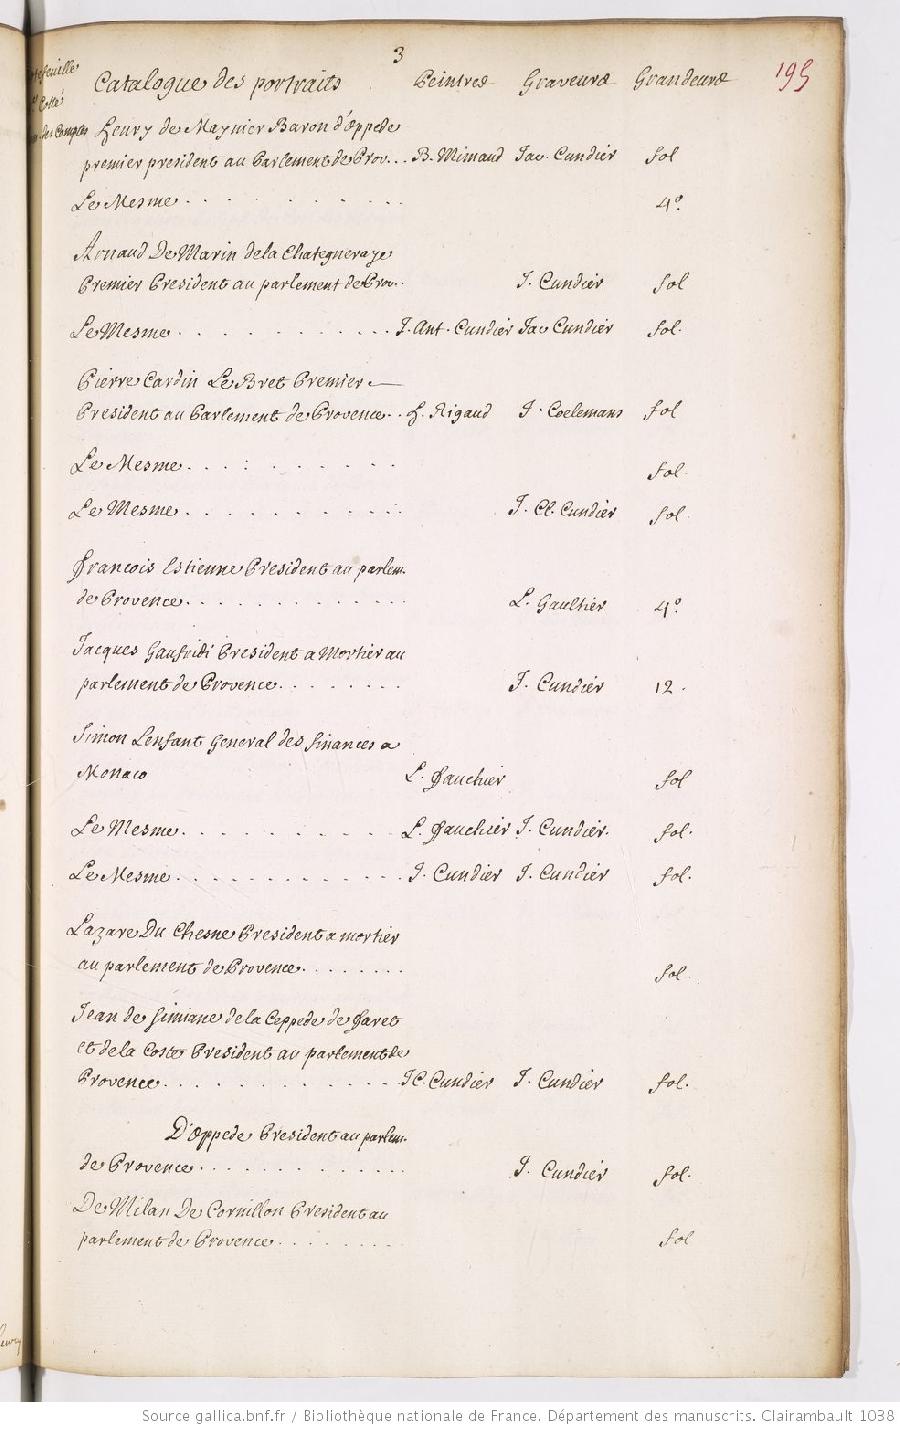 3
195
Catalogue des portraits Peintres Graveurs Grandeurs
Henry de Maynier Baron d'Oppede
premier president au Parlement de Prov... B. Mimaud Jac. Cundier fol
Le Mesme . . . . . . . . . 4°.
Arnaud De Marin dela Chategneraye
Premier President au parlement de Prov.. J. Cundier fol
Le Mesme . . . . . . . . . . J. Ant. Cundier Jac Cundier fol.
Pierre Cardin Le Bret Premier
President au Parlement de Provence. . H. Rigaud J. Coelemans fol
Le Mesme . . . . . . . . . fol.
Le Mesme . . . . . . . . . J. Cl. Cundier fol
François Estienne President au parlem.
de Provence . . . . . . . . . L. Gaultier 4°
Jacques Gaufridi President a Mortier au
parlement de Provence . . . . . . . J. Cundier 12.
Simon Lenfant General des finances a
Monaco L. Fauchier fol
Le Mesme . . . . . . . . . L. Fauchier J. Cundier. fol.
Le Mesme . . . . . . . . . . J. Cundier J. Cundier fol.
Lazare Du Chesne President a mortier
au parlement de Provence . . . . . . fol
Jean de Simiane de la Ceppede de
et de la Coste President au parlement de
Provence . . . . . . . . . . . JC. Cundier J. Cundier fol.
D'Oppede President au parlem.
de Provence . . . . . . . . . . J. Cundier fol.
De Milan De Cornillon President au
parlement de Provence . . . . . . . fol
Source gallica.bnf.fr / Bibliothèque nationale de France. Département des manuscrits. Clairambault 1038